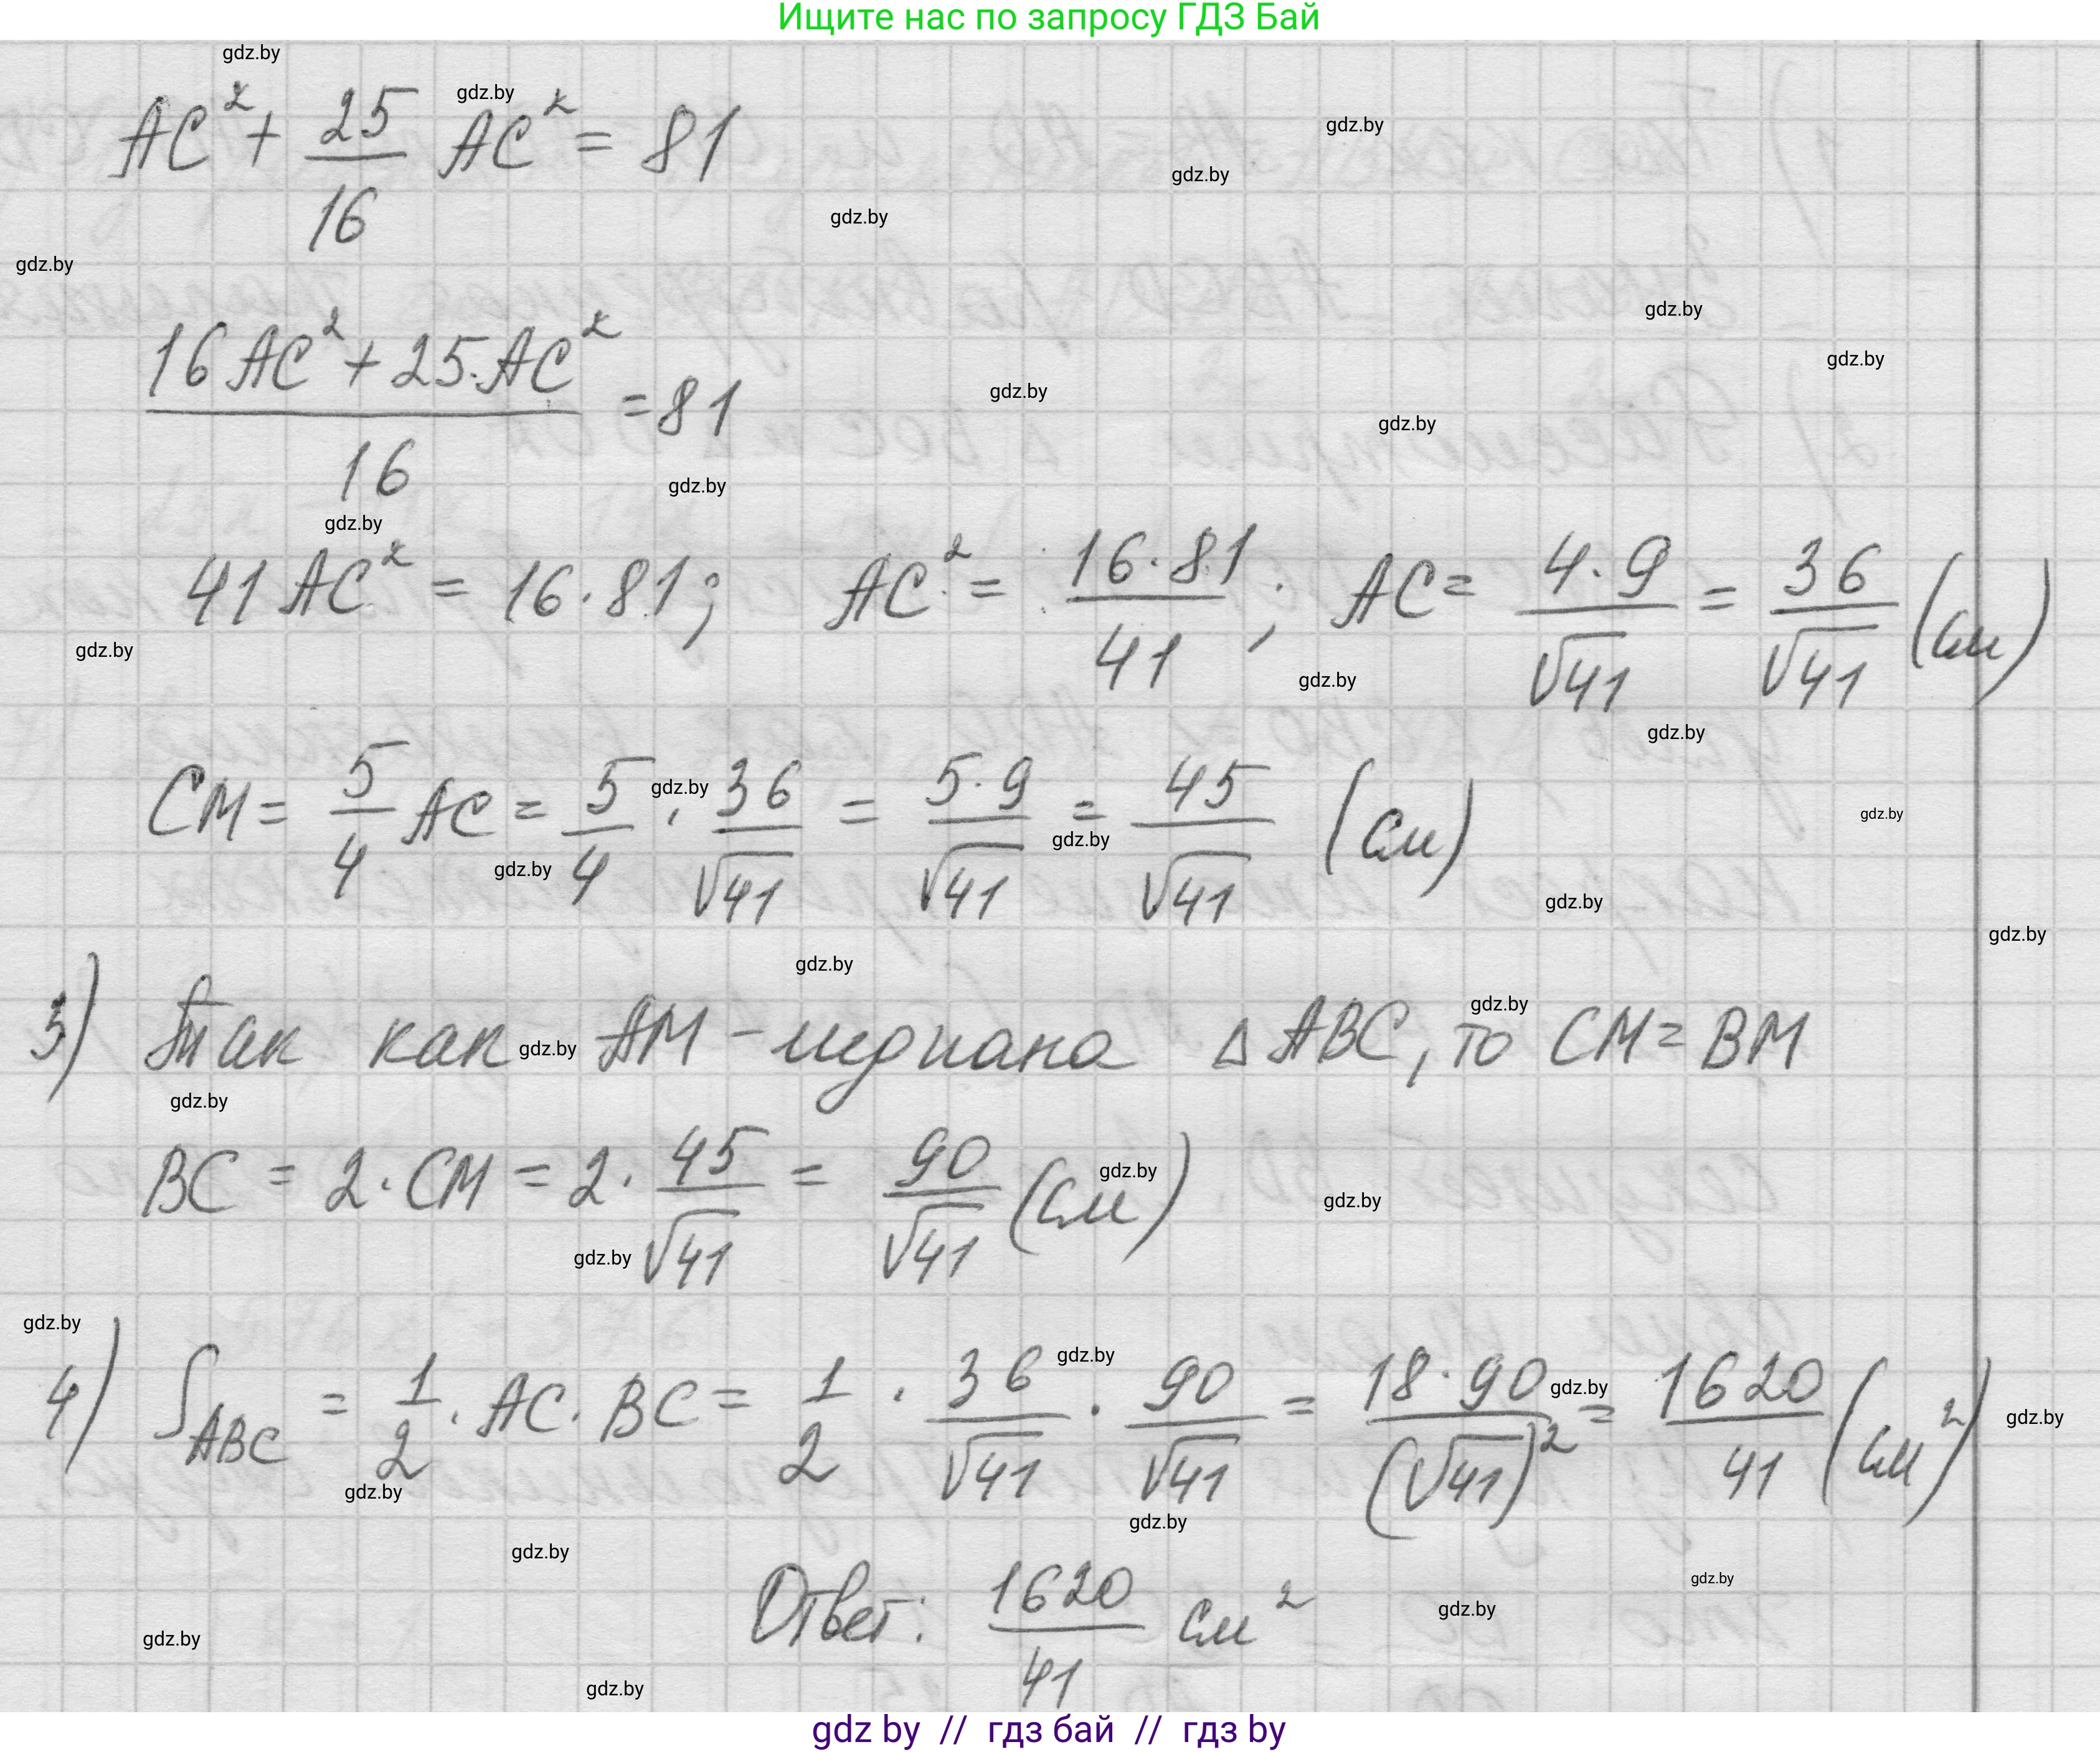 Ищите нас по запросу ГДЗ Бай
AC² + 25/16 AC² = 81
(16AC² + 25·AC²)/16 = 81
41AC² = 16·81; AC² = 16·81/41; AC = 4·9/√41 = 36/√41 (см)
CM = 5/4 AC = 5/4 · 36/√41 = 5·9/√41 = 45/√41 (см)
3) Так как AM – медиана Δ ABC, то CM = BM
BC = 2·CM = 2· 45/√41 = 90/√41 (см)
4) S_ABC = 1/2 · AC · BC = 1/2 · 36/√41 · 90/√41 = 18·90/(√41)² = 1620/41 (см²)
Ответ: 1620/41 см²
gdz by // гдз бай // гдз by